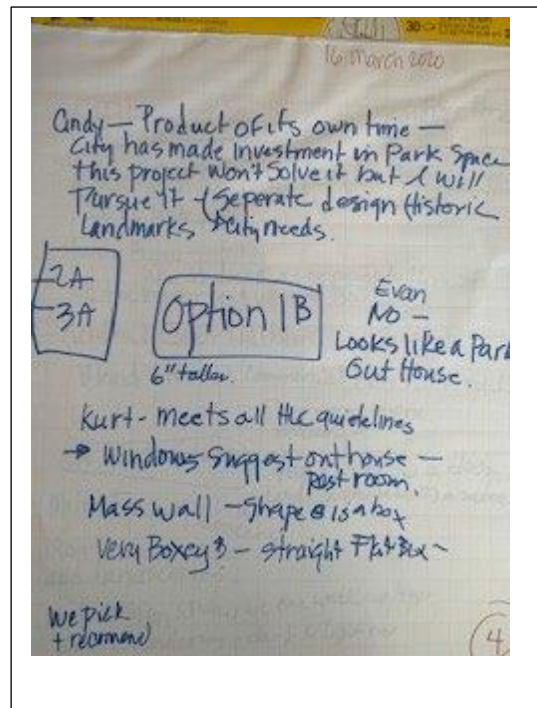 30
16 March 2020
Cindy — Product of its own time —
City has made investment in Park Space
this project won't solve it but I will
Pursue it - (Seperate design (Historic
Landmarks, City needs.
2A
3A
Option 1B
6" taller.
Evan
No —
Looks like a Park
Out House.
Kurt - meets all HLC guidelines
→ Windows suggest outhouse —
Rest room.
Mass wall - Shape is a box
Very Boxey & - straight Flat Box ~
We pick
+ recommend
4